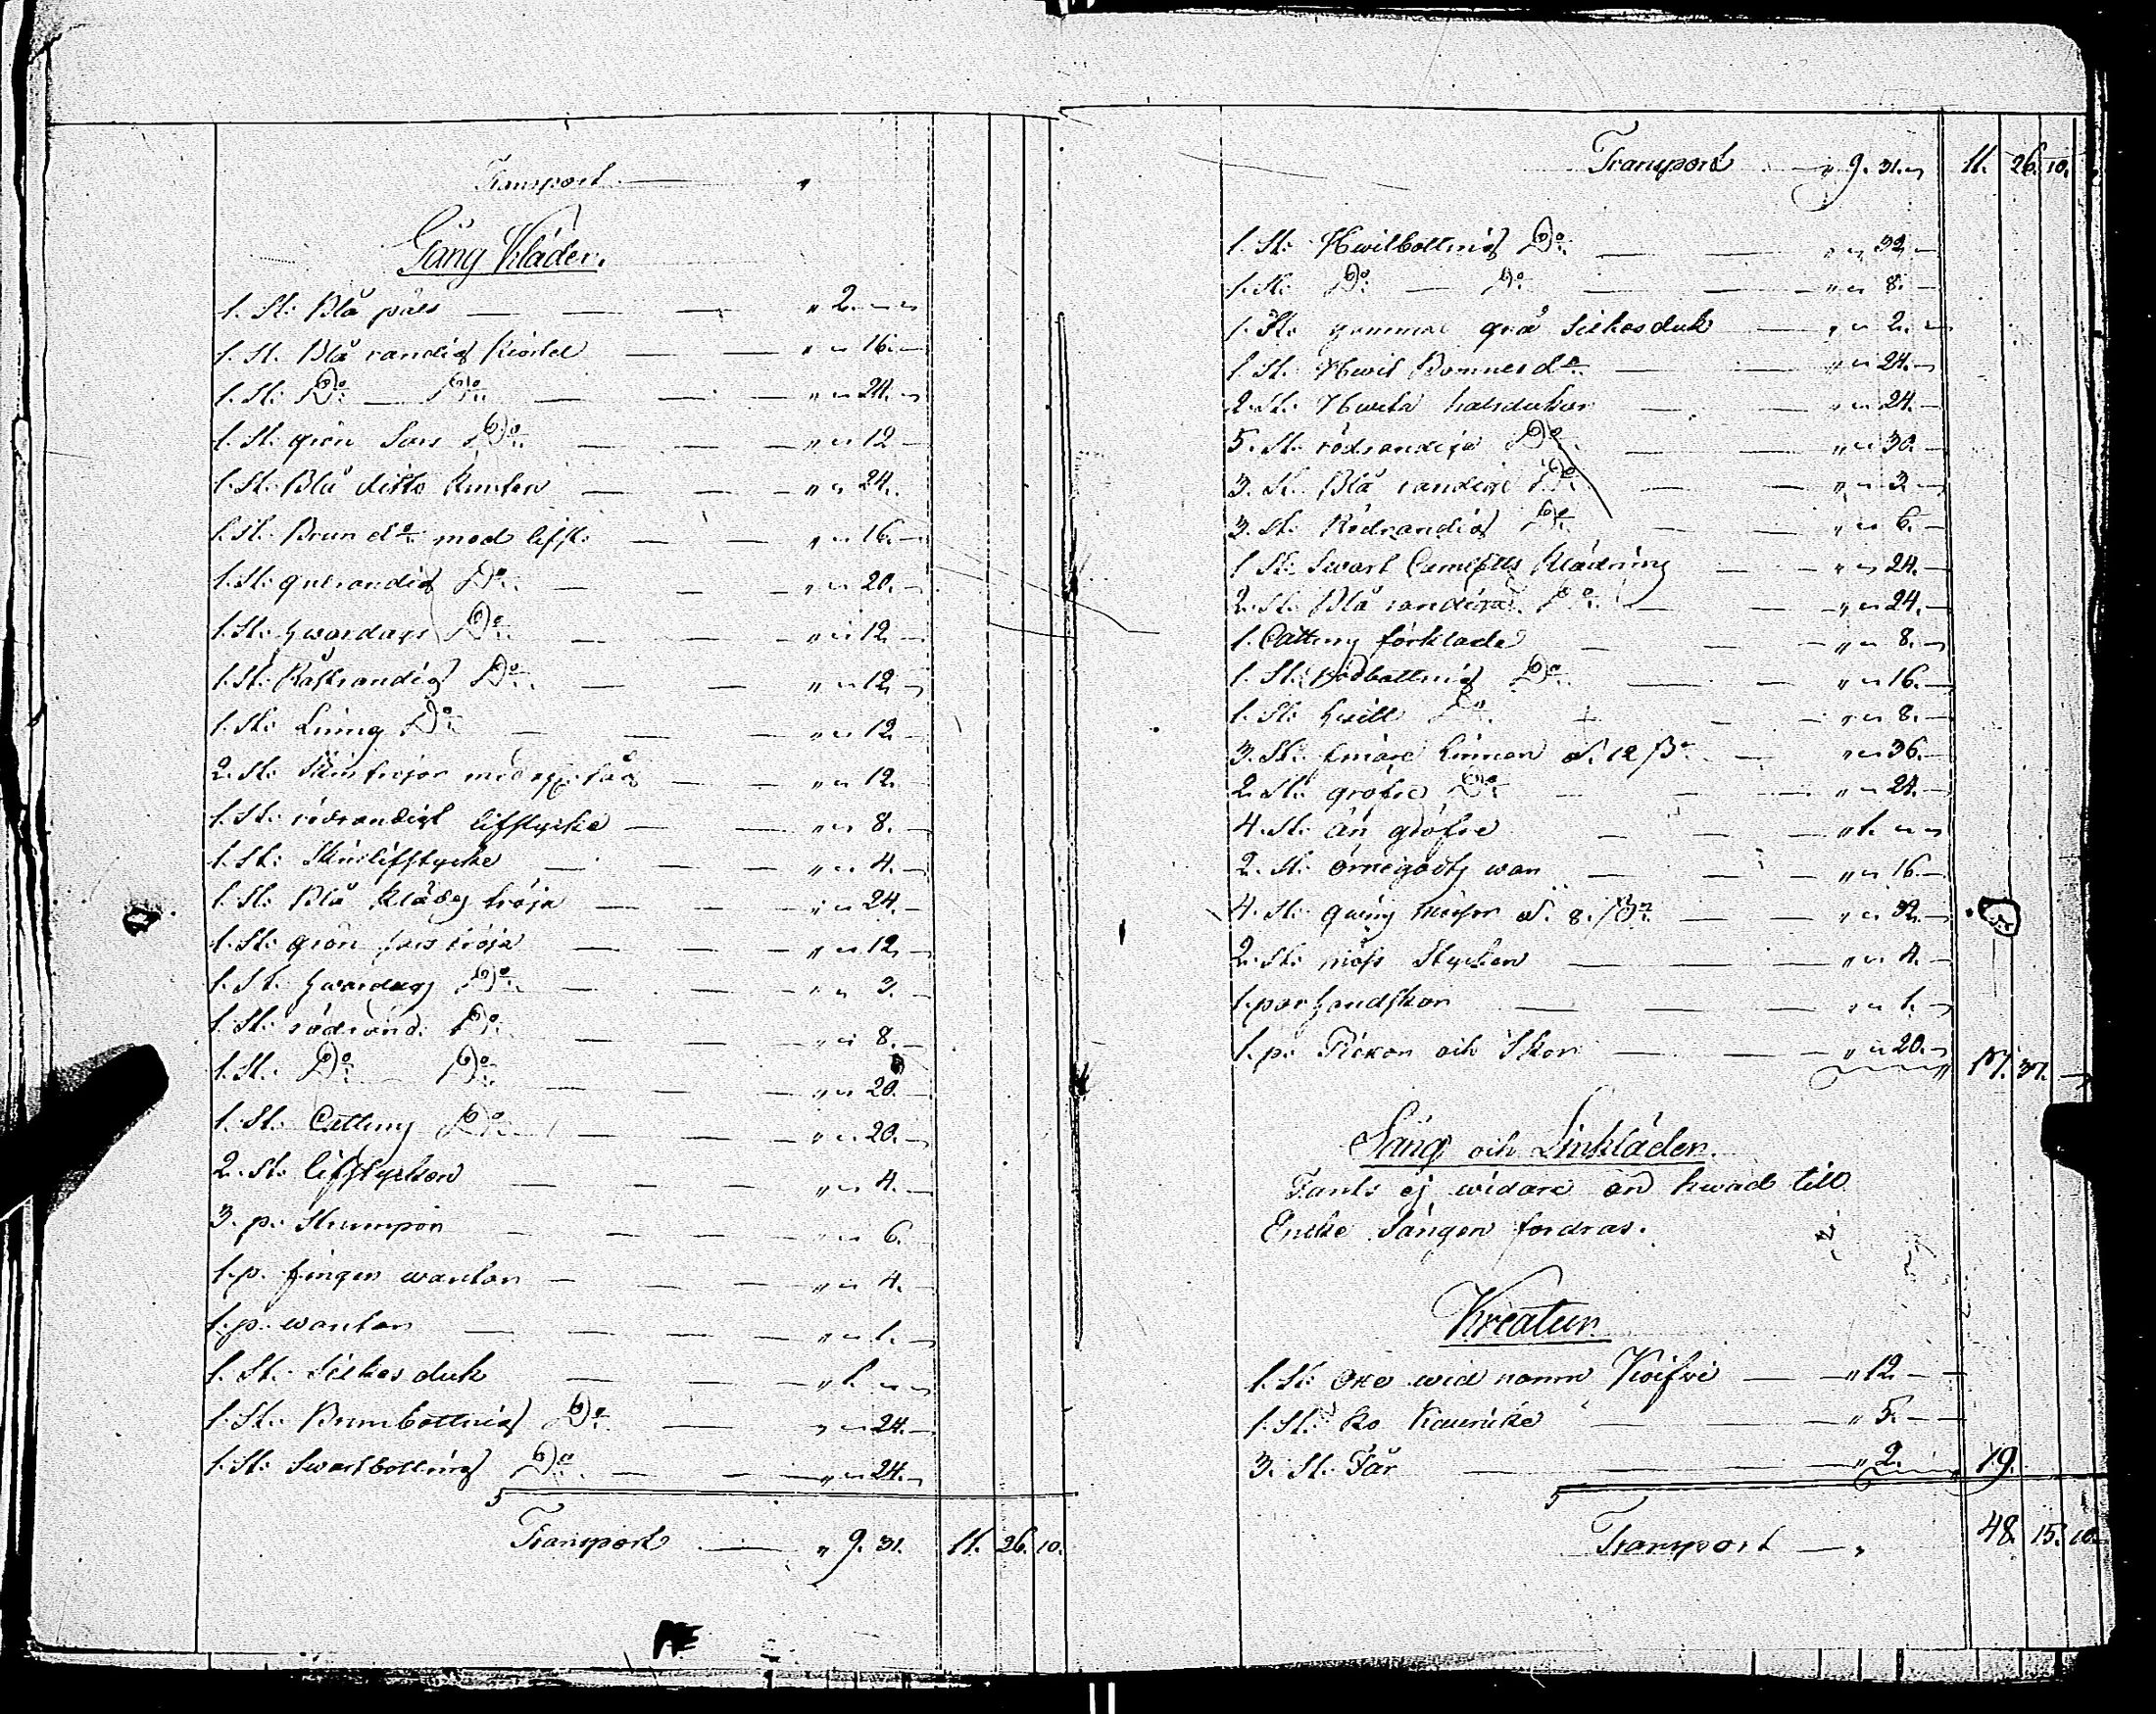 Transport
Gång Kläder.
1. St: Blå päls — — — " 2. — —
1. St. Blå randig Kiortel — — " " 16. —
1. St: Do — Do — — — " " 24. —
1. St: grön Sars Do — — — " " 12 —
1. St: Blå ditto — — — " " 24.
1. St: Brun do med lifst: — — " " 16. —
1. St: gulrandig Do — — — " " 20. —
1. St: hwardags Do — — — " " 12 —
1. St: randig Do — — — " " 12 —
1. St: Do — — — " " 12 —
2. St: — — " " 12. —
1. St: rödrandigt lifstycke — — " " 8. —
1. St: Skinlifstycke — — — " " 4. —
1. St: Blå Klädes tröja — — — " " 24. —
1. St: grön sars tröja — — — " " 12 —
1. St. hwardags Do — — — " " 3. —
1. St: rödrand: Do — — — " " 8. —
1. St. Do Do — — — " " 20. —
1. St: Cattuns Do — — — " " 20. —
2. St: lifstycken — — — " " 4. —
3. p: Strumpor — — — " " 6.
1. p. finger wantar — — — " " 4. —
1. p: wantar — — — — " " 1. —
1. St. Silkes duk — — — " 1. — —
1. St: Brunbottnig Do — — " " 24. —
1. St: Swartbottnig Do — — — " " 24. —
Transport — " 9. 31. 11. 26. 10.
Transport — " 9. 31. — 11. 26. 10.
1. St: Hwitbottnig Do — — " " 32 —
1. St: Do — Do — — — " " 8. —
1. St: gammal grå Silkesduk — " " 2. —
1. St. Hwit do — — — " " 24. —
2. St: Hwita halsdukar — — " " 24. —
5. St: rödrandiga Do — — " " 30. —
3. St. Blå randige Do — — " " 3. —
3. St: Rödrandig Do — — " " 6. —
1 St: Swart Camlotts Klädning — — " " 24. —
2. St. Blå randiga Do — — " " 24. —
1. Cattuns förkläde — — " " 8. —
1. St: Rödbottnig Do — — " " 16. —
1. St: hwitt Do — — " " 8. —
3. St: smäre Linnen á 12 ß — " " 36. —
2. St: gröfre Do — — — " " 24. —
4. St: än gröfre — — — " 1. — —
2. St: — — — " " 16. —
4. St: á 8. ß — — " " 32. —
2. St: möss Stycken — — — " " 4. —
1. par handskar — — — " " 1. —
1. p: och Skor — — — " " 20. — 17. 37. —
Säng och Linkläder.
Fants ej widare än hwad till
Enke Sängen fordras.
Kreatur
1. St: Oxe wid namn — " 12 — —
1. St: ko — — — " 5. — —
3. St. Får — — — " 2. 19.
Transport — " 48. 15. 10.